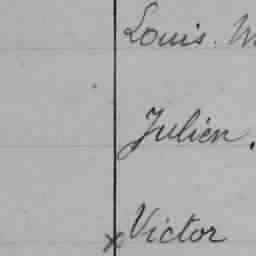 Louis.
Julien.
x Victor